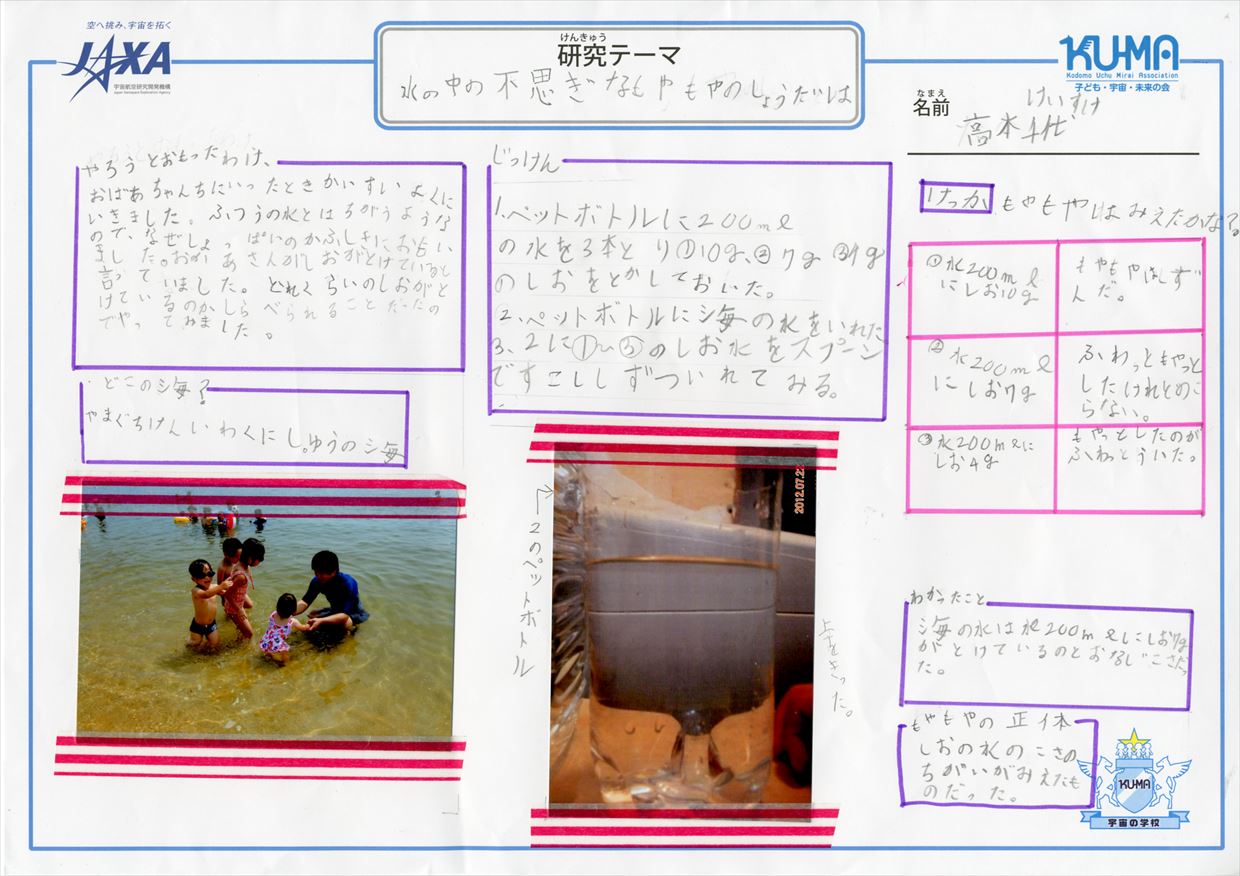 空へ挑み、宇宙を拓く
JAXA
宇宙航空研究開発機構
Japan Aerospace Exploration Agency
けんきゅう
研究テーマ
水の中の不思ぎなもやもやのしょうたいは
KU-MA
Kodomo Uchu Mirai Association
子ども・宇宙・未来の会
なまえ
名前
けいすけ
高本
やろうとおもったわけ、
おばあちゃんちにいったときかいすいよくに
いきました。ふつうの水とはちがうような
ので、なぜしょっぱいのかふしぎにおもい
ました。おかあさんがしおがとけていると
言っていました。どれくらいのしおがと
けているのかしらべられることだったの
でやってみました。
どこのシ毎?
やまぐちけんいわくにし。ゆうのシ毎
じっけん
1.ペットボトルに200mℓ
の水を3本とり①10g、②7g ③4g
のしおをとかしておいた。
2.ペットボトルにシ毎の水をいれた
3、2に①〜③のしお水をスプーン
ですこししずついれてみる。
2のペットボトル
2012.07.2
上をきった。
けっか もやもやはみえたかなる
①水200mℓ
にしお10g
もやもやはしず
んだ。
②水200mℓ
にしお7g
ふわっともやっと
したけれどのこ
らない。
③水200mℓに
しお4g
もやっとしたのが
ふわっとういた。
わかったこと
海の水は水200mℓにしお7g
がとけているのとおなじこさだっ
た。
もやもやの正体
しおの水のこさの
ちがいがみえたも
のだった。
KU-MA
宇宙の学校